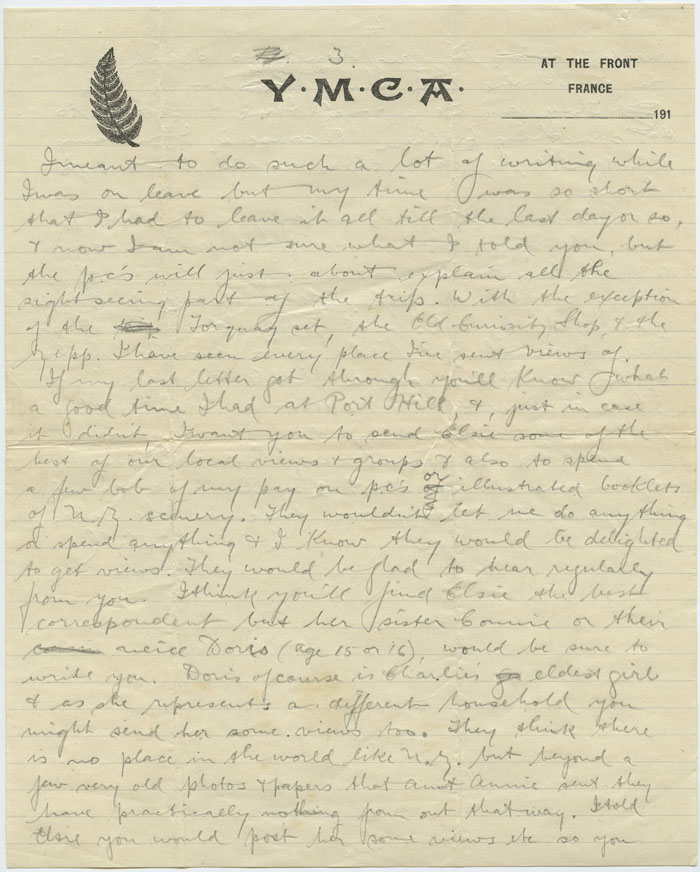 3.
Y·M·C·A·
AT THE FRONT
FRANCE
191
I meant to do such a lot of writing while
I was on leave but my time was so short
that I had to leave it all till the last day or so,
& now I am not sure what I told you, but
the p.c's will just about explain all the
sight seeing part of the trip. With the exception
of the Torquay set, the Old Curiosity Shop & the
Zepp. I have seen every place I've sent views of.
If my last letter got through you'll know what
a good time I had at Port Hill, &, just in case
it didn't, I want you to send Elsie some of the
best of our local views & groups & also to spend
a few bob of my pay on p.c's & illustrated booklets
of N.Z. scenery. They wouldn't let me do anything
a spend anything & I know they would be delighted
to get views. They would be glad to hear regularly
from you. I think you'll find Elsie the best
correspondent but her sister Connie or their
neice Doris (age 15 or 16), would be sure to
write you. Doris of course is Charlie's eldest girl
& as she represents a different household you
might send her some views too. They think there
is no place in the world like N.Z. but beyond a
few very old photos & papers that aunt Annie sent they
have practically nothing from out that way. I told
Elsie you would post her some views etc so you